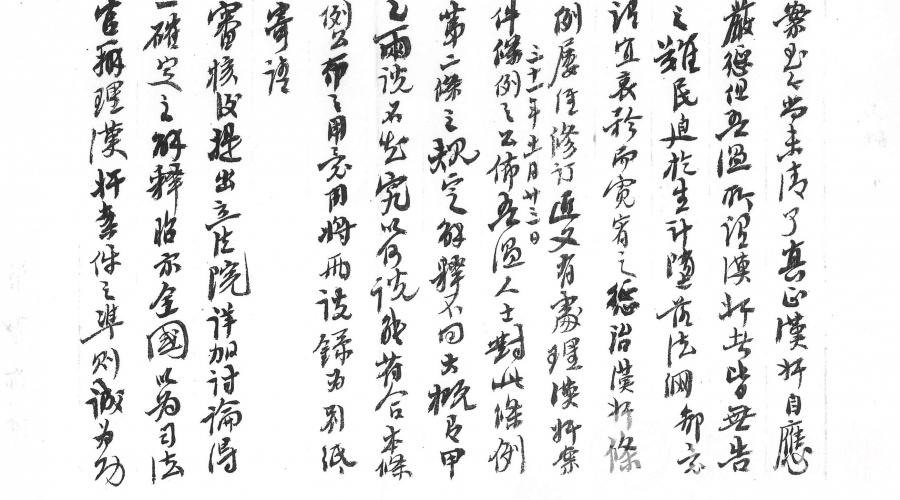 案至今尚未清了真正漢奸自應
嚴懲但吾溫所謂漢奸者皆無告
之難民迫於生計墮落法網鄙意
認宜哀矜而寬宥之懲治漢奸條
例屢經修訂近又有處理漢奸案
三十一年十一月廿三日
件條例之公佈吾溫人士對此條例
第二條之規定解釋不同大概有甲
乙兩說不知究以何說能符合本條
例公布之用意用將兩說錄為別紙
寄請
審核後提出立法院詳加討論得
一確定之解釋昭示全國以為司法
官辦理漢奸案件之準則誠為功